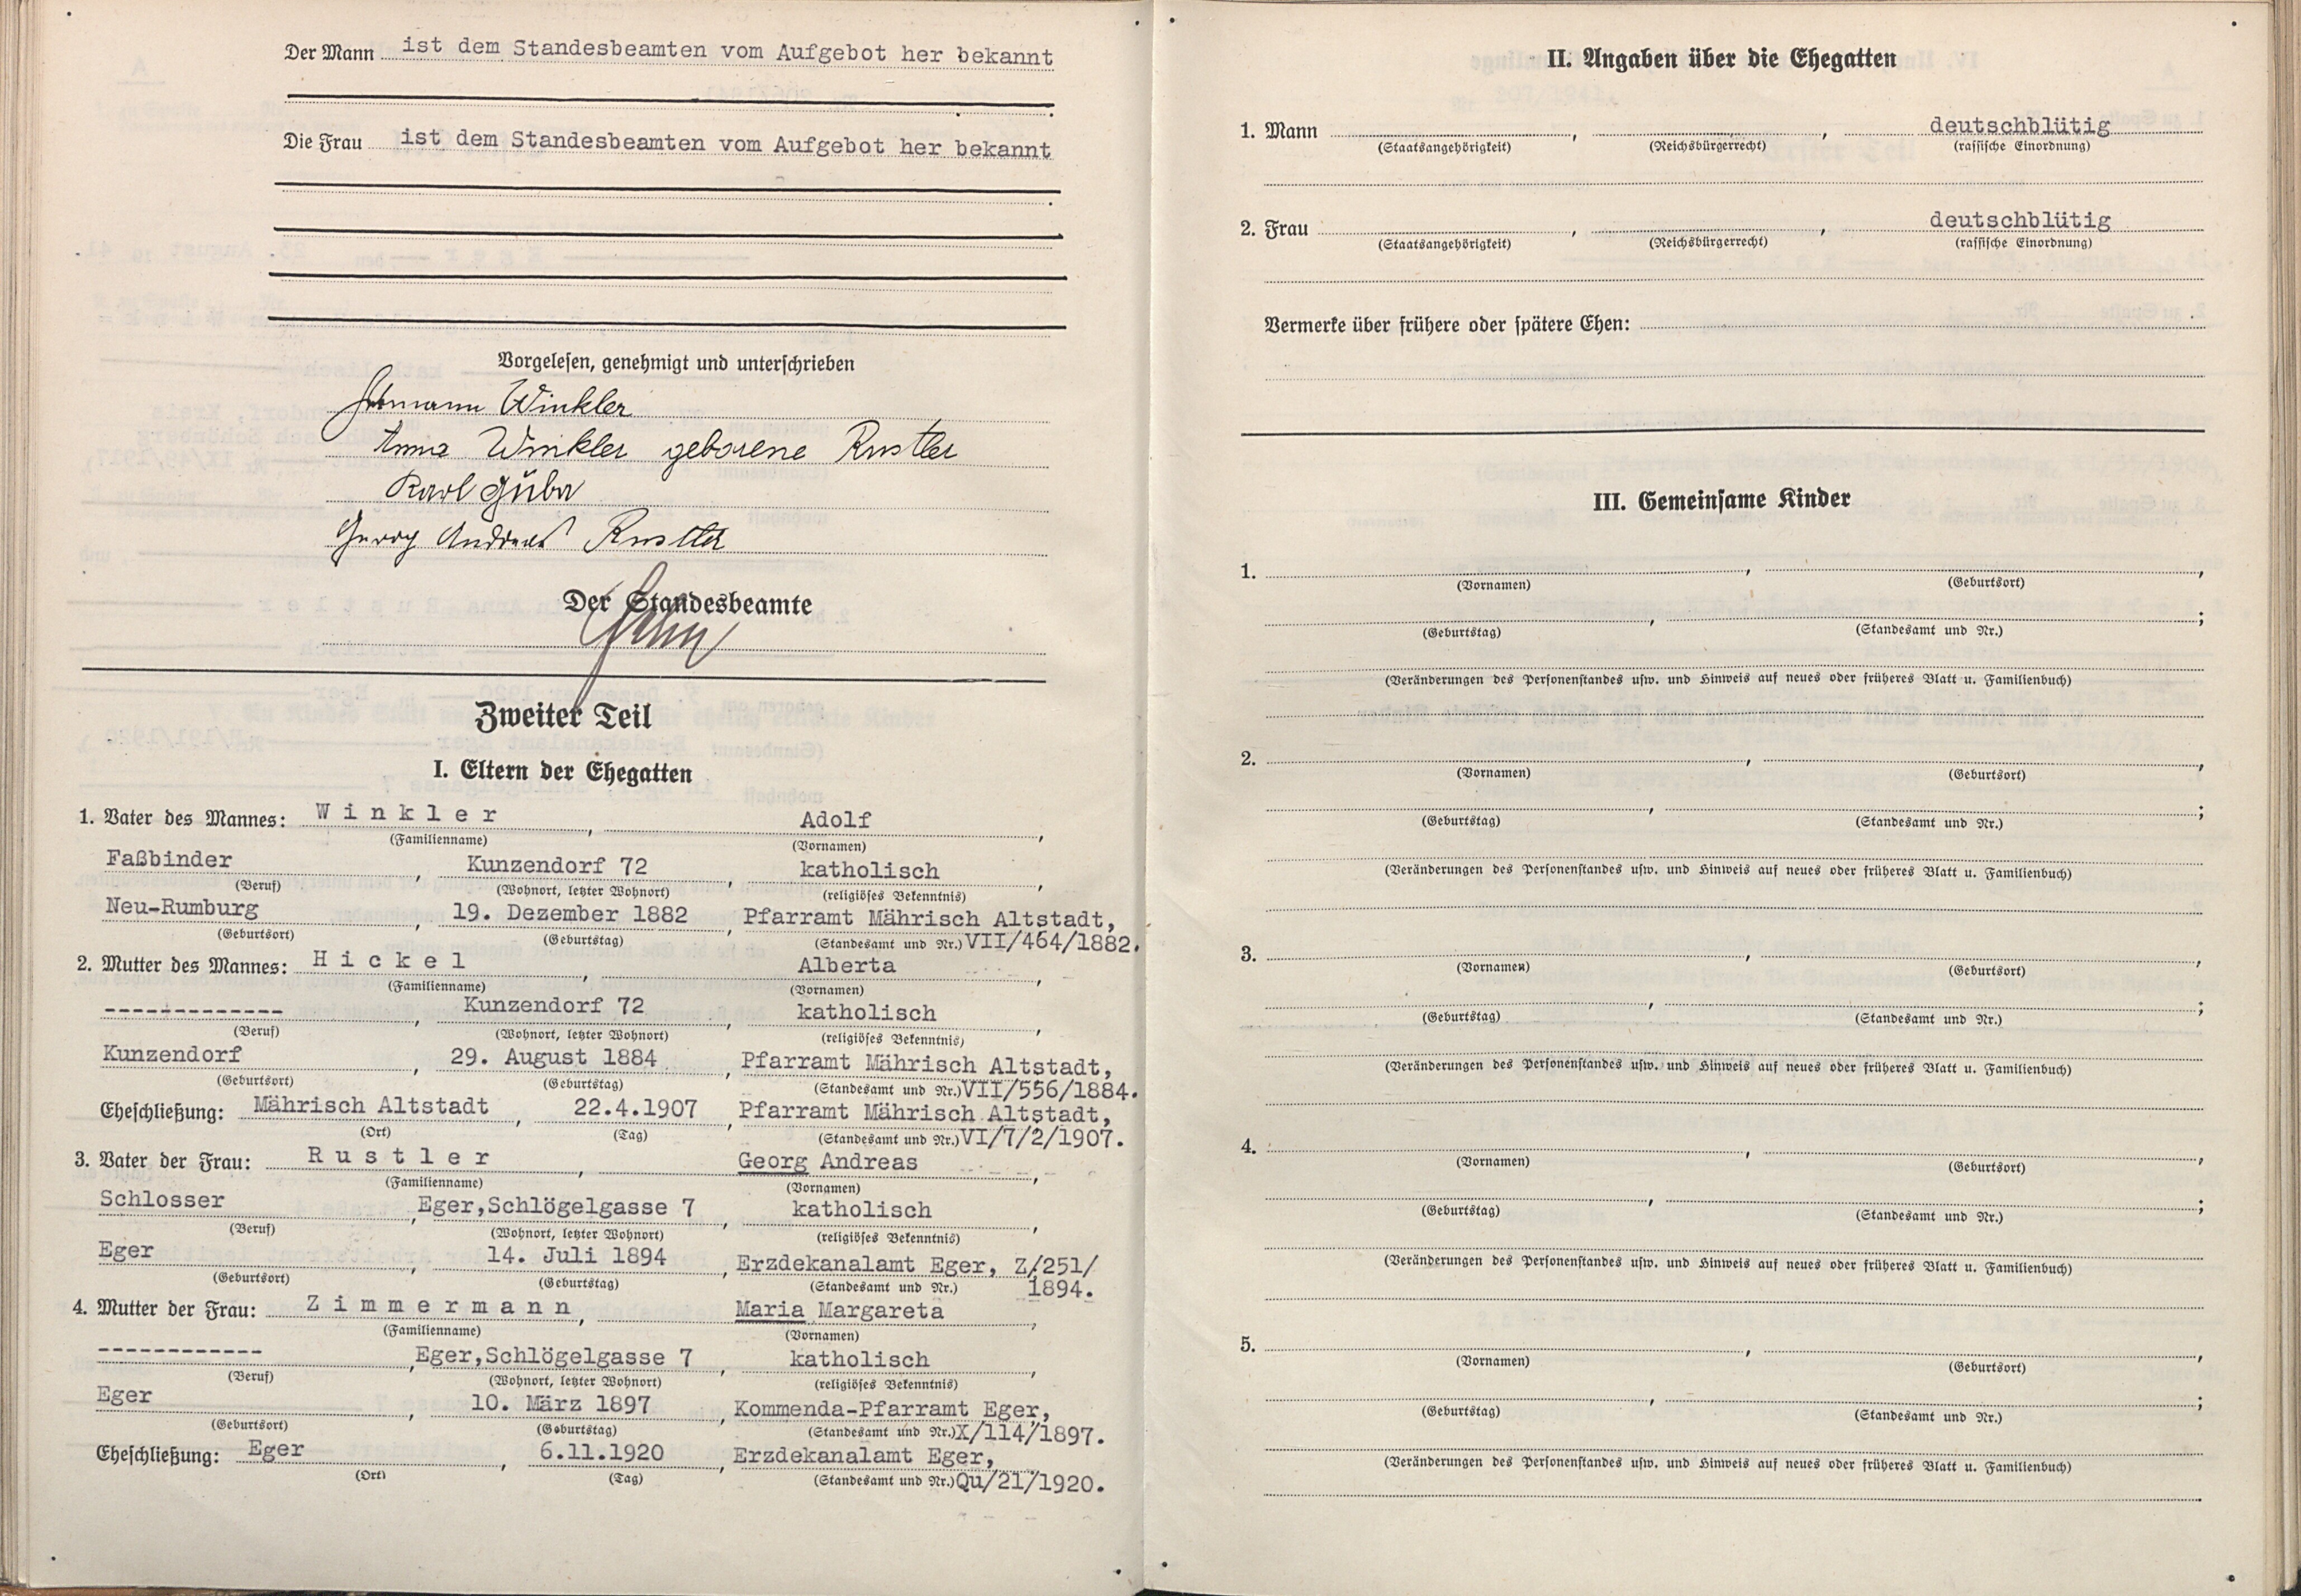 Der Mann ist dem Standesbeamten vom Aufgebot her bekannt
Die Frau ist dem Standesbeamten vom Aufgebot her bekannt
Vorgelesen, genehmigt und unterschrieben
Hermann Winkler
Anna Winkler geborene Rustler
Karl
Georg Andreas Rustler
Der Standesbeamte
Zweiter Teil
I. Eltern der Ehegatten
1. Vater des Mannes: Winkler, Adolf,
(Familienname) (Vornamen)
Faßbinder, Kunzendorf 72, katholisch,
(Beruf) (Wohnort, letzter Wohnort) (religiöses Bekenntnis)
Neu-Rumburg, 19. Dezember 1882, Pfarramt Mährisch Altstadt,
(Geburtsort) (Geburtstag) (Standesamt und Nr.) VII/464/1882.
2. Mutter des Mannes: Hickel, Alberta,
(Familienname) (Vornamen)
-------------, Kunzendorf 72, katholisch,
(Beruf) (Wohnort, letzter Wohnort) (religiöses Bekenntnis)
Kunzendorf, 29. August 1884, Pfarramt Mährisch Altstadt,
(Geburtsort) (Geburtstag) (Standesamt und Nr.) VII/556/1884.
Eheschließung: Mährisch Altstadt, 22.4.1907, Pfarramt Mährisch Altstadt,
(Ort) (Tag) (Standesamt und Nr.) VI/7/2/1907.
3. Vater der Frau: Rustler, Georg Andreas,
(Familienname) (Vornamen)
Schlosser, Eger,Schlögelgasse 7, katholisch,
(Beruf) (Wohnort, letzter Wohnort) (religiöses Bekenntnis)
Eger, 14. Juli 1894, Erzdekanalamt Eger, Z/251/
(Geburtsort) (Geburtstag) (Standesamt und Nr.) 1894.
4. Mutter der Frau: Zimmermann, Maria Margareta,
(Familienname) (Vornamen)
------------, Eger,Schlögelgasse 7, katholisch,
(Beruf) (Wohnort, letzter Wohnort) (religiöses Bekenntnis)
Eger, 10. März 1897, Kommenda-Pfarramt Eger,
(Geburtsort) (Geburtstag) (Standesamt und Nr.) X/114/1897.
Eheschließung: Eger, 6.11.1920, Erzdekanalamt Eger,
(Ort) (Tag) (Standesamt und Nr.) Qu/21/1920.
II. Angaben über die Ehegatten
1. Mann , , deutschblütig
(Staatsangehörigkeit) (Reichsbürgerrecht) (rassische Einordnung)
2. Frau , , deutschblütig
(Staatsangehörigkeit) (Reichsbürgerrecht) (rassische Einordnung)
Vermerke über frühere oder spätere Ehen:
III. Gemeinsame Kinder
1. , ,
(Vornamen) (Geburtsort)
, ;
(Geburtstag) (Standesamt und Nr.)
(Veränderungen des Personenstandes usw. und Hinweis auf neues oder früheres Blatt u. Familienbuch)
2. , ,
(Vornamen) (Geburtsort)
, ;
(Geburtstag) (Standesamt und Nr.)
(Veränderungen des Personenstandes usw. und Hinweis auf neues oder früheres Blatt u. Familienbuch)
3. , ,
(Vornamen) (Geburtsort)
, ;
(Geburtstag) (Standesamt und Nr.)
(Veränderungen des Personenstandes usw. und Hinweis auf neues oder früheres Blatt u. Familienbuch)
4. , ,
(Vornamen) (Geburtsort)
, ;
(Geburtstag) (Standesamt und Nr.)
(Veränderungen des Personenstandes usw. und Hinweis auf neues oder früheres Blatt u. Familienbuch)
5. , ,
(Vornamen) (Geburtsort)
, ;
(Geburtstag) (Standesamt und Nr.)
(Veränderungen des Personenstandes usw. und Hinweis auf neues oder früheres Blatt u. Familienbuch)